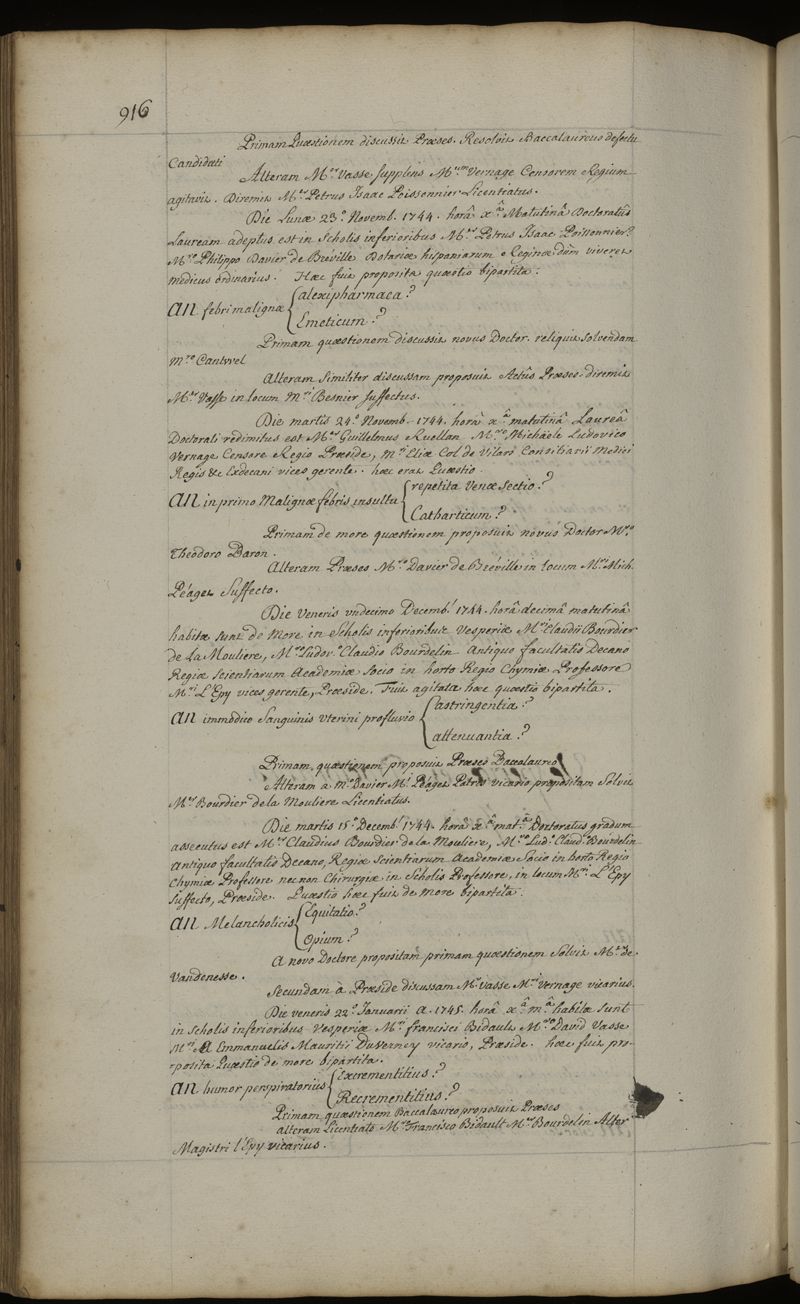 916
Primam Quæstionem discussit Præses. Resolvit Baccalaureus defectu
Candidati
Alteram M.er Vasse supplens M.um Vernage Censorem Regium
agitavit. Diremit M.er Petrus Isaac Poissonnier Licentiatus.
Die Lunæ 23.o Novemb. 1744. horâ x.â Matutinâ Doctoratûs
Lauream adeptus est in Scholis inferioribus M.er Petrus Isaac Poissonnier
M.ro Philippo Davier de Breville Dotariæ hispaniarum Reginæ dùm viveret
medicus ordinarius. Hæc fuit proposita quæstio bipartita:
AN febri malignæ { alexipharmaca?
Emeticum?
Primam quæstionem discussit novus Doctor. reliquit Solvendam
M.ro Cantwel
Alteram Similiter discussam proposuit Actûs Præses. diremit
M.er Vasse in locum M.ri Besnier Suffectus.
Die martis 24.o Novemb. 1744. horâ x.â matutinâ Laureâ
Doctorali redimitus est M.er Guillelmus Ruellan M.ro Michaële Ludovico
Vernage Censore Regio Præside, M.ri Eliæ Col de Vilars Consiliarii Medici
Regis &c Exdecani vices gerente. hæc erat Quæstio.
AN in primo Malignæ febris insultu { repetita Venæ Sectio?
Catharticum?
Primam de more quæstionem proposuit novus Doctor M.ro
Theodoro Baron.
Alteram Præses M.ro Davier de Bréville in locum M.ri Mich.
Péaget Suffecto.
Die Veneris undecimo Decemb! 1744. horâ decimâ matutinâ
habitæ sunt de More in Scholis inferioribus Vesperiæ M.ri Claudii Bourdier
de La Mouliere, M.ro Ludov.o Claudio Bourdelin Antiquo facultatis Decano
Regiæ Scientiarum Academiæ Socio in horto Regio Chymiæ Professore
M.ri L'Epy vices gerente, Præside. Fuit agitata hæc quæstio bipartita.
AN immodico Sanguinis Uterini profluvio { astringentia?
attenuantia?
Primam quæstionem proposuit Præses Baccalaureo
Alteram a M.ro Davier M.ri Péaget Petri vicario propositam Solvit
M.er Bourdier de la Mouliere Licentiatus.
Die martis 15.o Decemb! 1744. horâ x.â mat.â Doctoratus gradum
assecutus est M.er Claudius Bourdier de la Mouliere, M.ro Lud.o Claud.o Bourdelin
Antiquo facultatis Decano, Regiæ Scientiarum Academiæ Socio in horto Regio
Chymiæ Professore nec non Chirurgiæ in Scholis Professore, in locum M.ri L'Epy
Suffecto, Præside. Quæstio hæc fuit de More bipartita:
AN Melancholicis { Equitatio?
Opium?
A novo Doctore propositam primam quæstionem Solvit M.er de
Vandenesse.
Secundam à Præside discussam M.er Vasse M.ri Vernage vicarius.
Die veneris 22.o Januarii A. 1745. horâ x.â m.â habitæ Sunt
in Scholis inferioribus Vesperiæ M.ri francisci Bidault M.ro David Vasse
M.ri Emmanuelis Mauritii DuVerney vicario, Præside. hæc fuit pro-
-posita Quæstio de more bipartita.
AN humor perspiratorius { Excrementitius?
Recrementitius?
Primam quæstionem Baccalaureo proposuit Præses
alteram Licentiato M.ro Francisco Bidault M.er Bourdelin Alter
Magistri l'Epy vicarius.